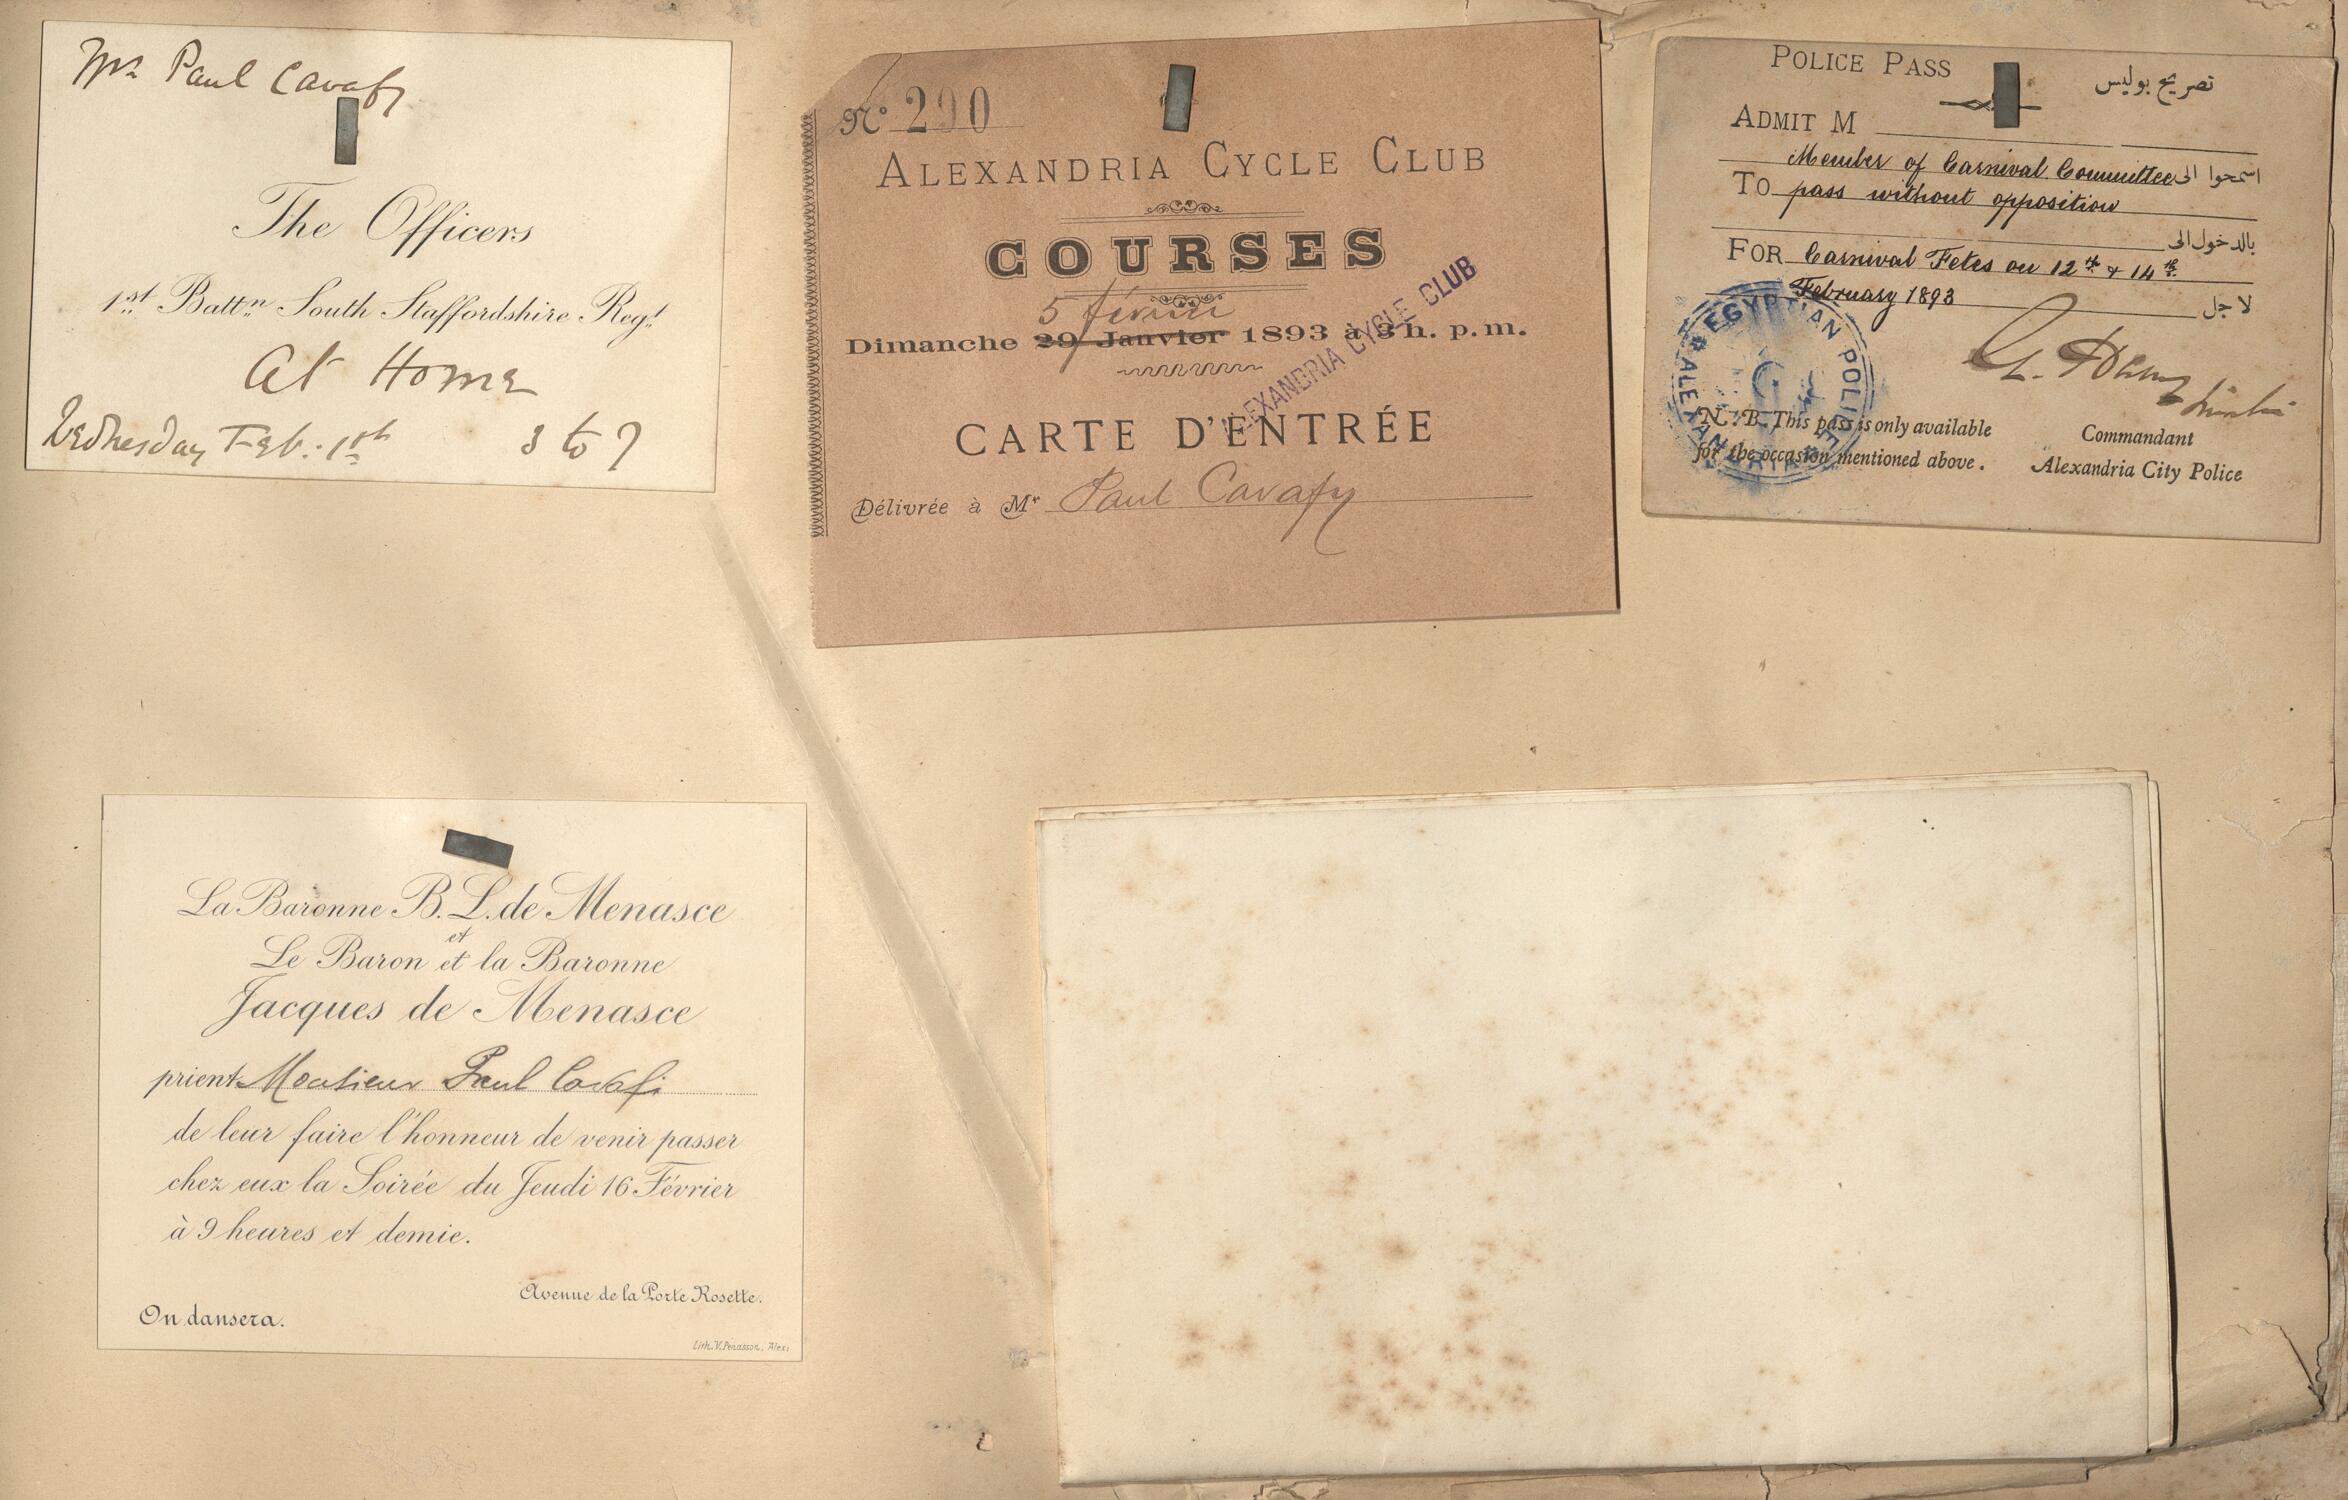 Mr Paul Cavafy
The Officers
1st Battn South Staffordshire Regt
At Home
Wednesday Feb. 1st 3 to 7
No 290
ALEXANDRIA CYCLE CLUB
COURSES
5 février
Dimanche 29 Janvier 1893 à 3 h. p.m.
ALEXANDRIA CYCLE CLUB
CARTE D'ENTRÉE
Délivrée à Mr Paul Cavafy
POLICE PASS تصريح بوليس
ADMIT M
Member of Carnival Committee اسمحوا الى
TO pass without opposition
بالدخول الى
FOR Carnival Fetes on 12th & 14th
February 1893 لاجل
EGYPTIAN POLICE ALEXANDRIA
N.B. This pass is only available
for the occasion mentioned above.
Commandant
Alexandria City Police
La Baronne B. L. de Menasce
et
Le Baron et la Baronne
Jacques de Menasce
prient Monsieur Paul Cavafi
de leur faire l'honneur de venir passer
chez eux la Soirée du Jeudi 16 Février
à 9 heures et demie.
Avenue de la Porte Rosette.
On dansera.
Lith. V. Penasson, Alex: